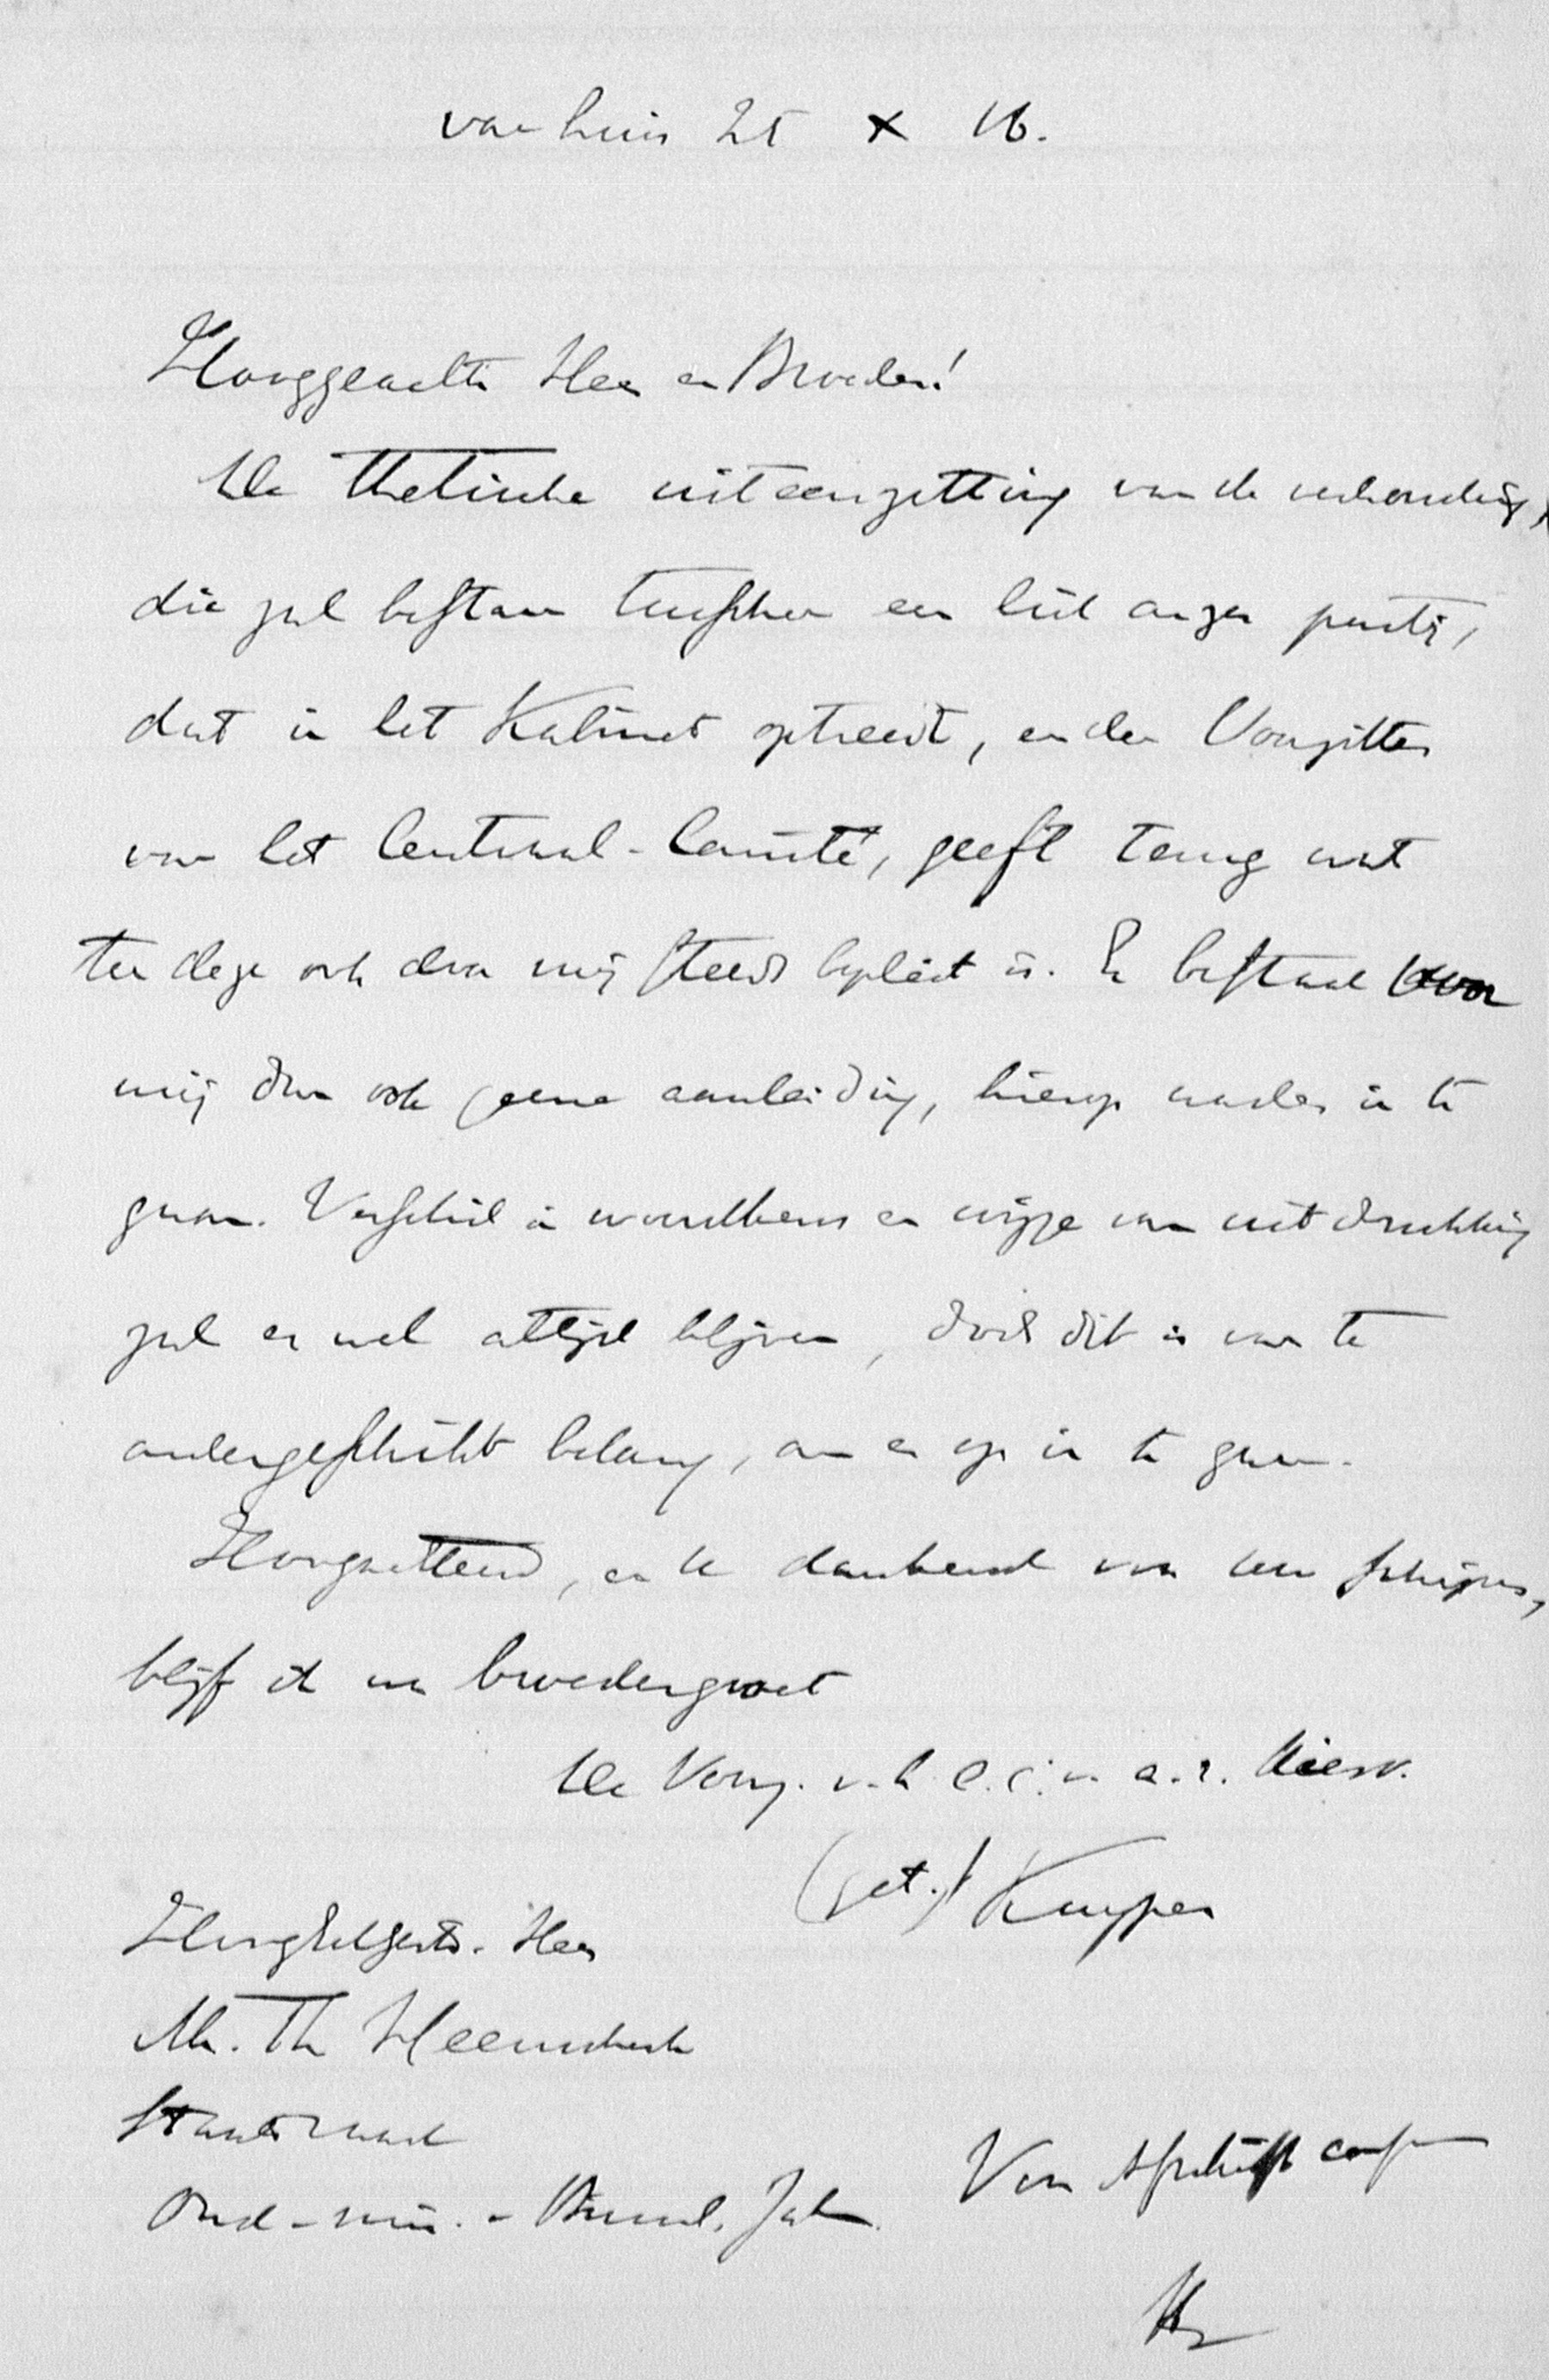 van huis 25 X 16.
Hooggeachte Heer en Broeder!
De thetische uiteenzetting van de verhouding,
die zal bestaan tusschen een lid onzer partij,
dat in het Kabinet optreedt, en den Voorzitter
van het Centraal-Comité, geeft terug wat
ter dege ook door mij steeds bepleit is. Er bestaat voor
mij dan ook geene aanleiding, hierop nader in te
gaan. Verschil in woordkeus en wijze van uitdrukking
zal er wel altijd blijven, doch dit is van te
ondergeschikt belang, om er op in te gaan.
Hoogachtend, en U dankend voor Uw schrijven,
blijf ik met broedergroet
De Voorz. v. h. C. C. v. a.-r. Kiesv.
(get.) Kuyper
HoogEdelGestr. Heer
Mr. Th Heemskerk
Staatsraad
Oud-min. v. Binnenl. Zak.
Voor Afschrift conf